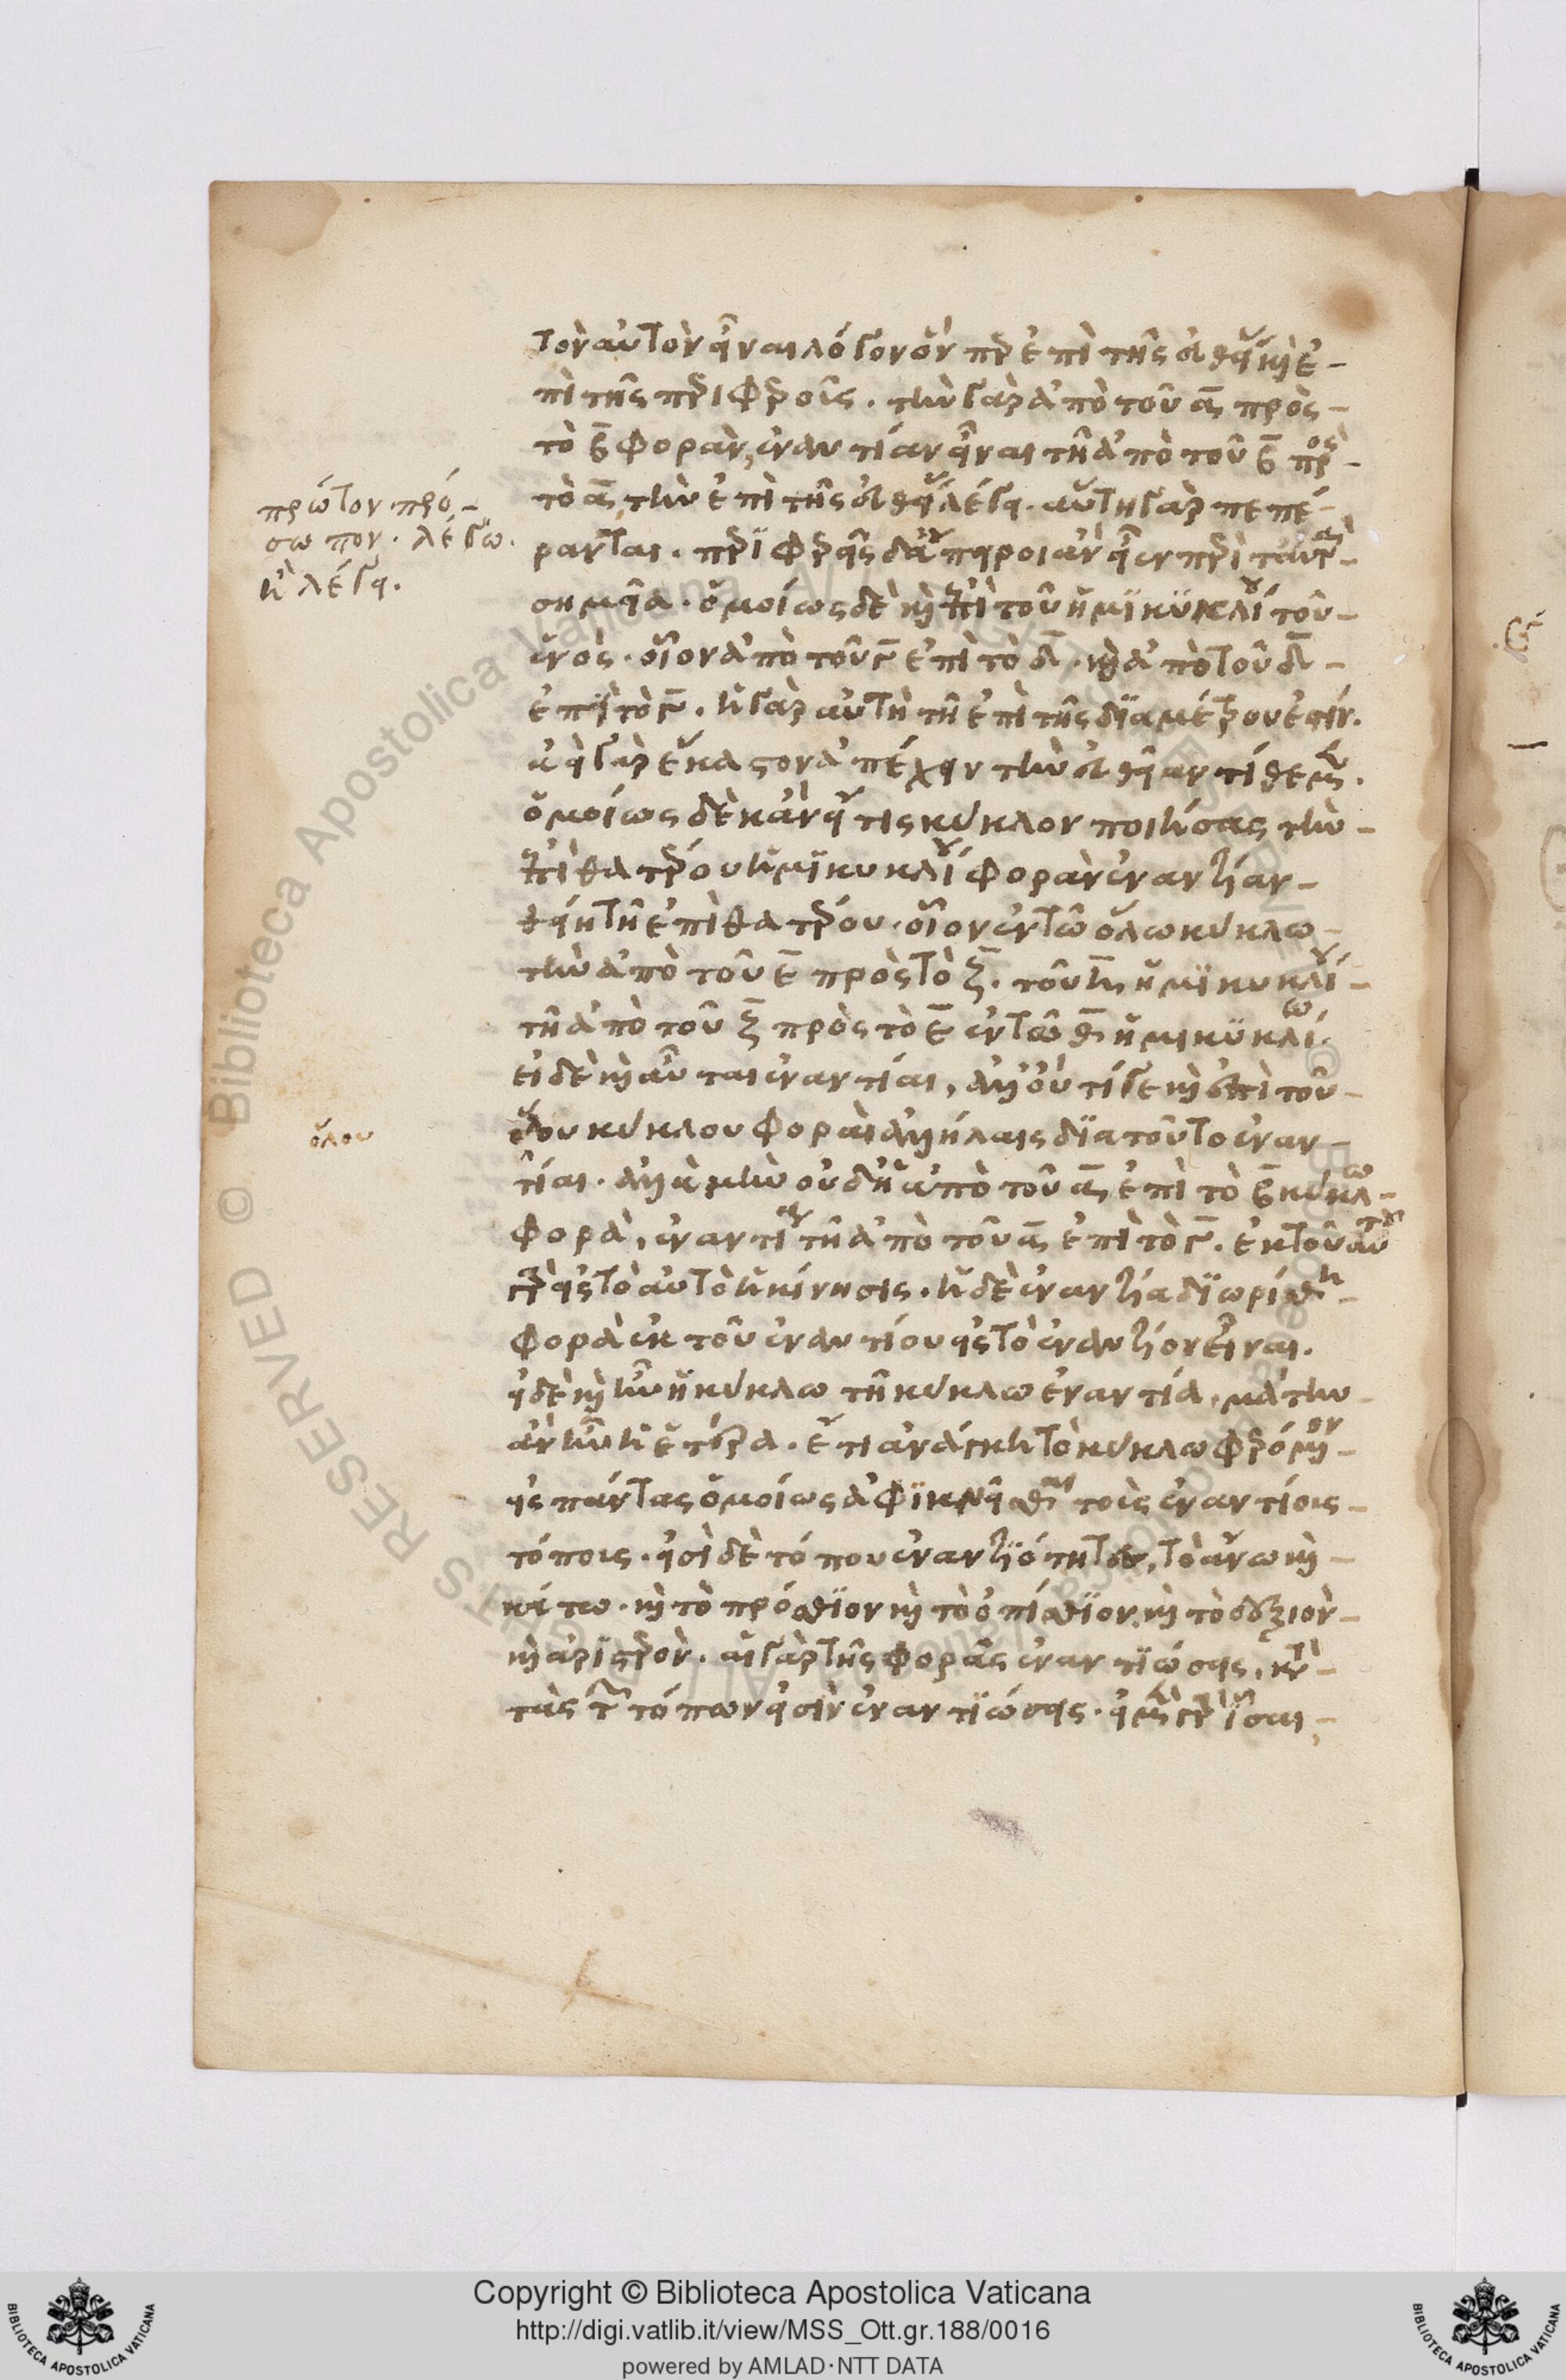 τὸν αὐτὸν εἶναι λόγον ὅνπερ ἐπὶ τῆς εὐθείας καὶ ἐ-
πὶ τῆς περιφεροῦς. τὴν γὰρ ἀπὸ τοῦ α πρὸς
τὸ β φορὰν, ἐναντίαν εἶναι τῆ ἀπὸ τοῦ β πρὸς
πρῶτον πρό-
σωπον. λέγω.
ἢ λέγει.
τὸ α, τὴν ἐπὶ τῆς εὐθείας λέγει. αὕτη γὰρ πεπέ-
ρανται. περϊφερεῖς δ' ἄπειροι ἂν εἶεν περὶ ταυτὰ
σημεῖα. ὁμοίως δὲ καὶ ἐπὶ τοῦ ἡμϊκϋκλίου τοῦ
ἑνός. οἷον ἀπὸ τοῦ γ ἐπὶ τὸ δ. καὶ ἀπὸ τοῦ δ
ἐπὶ τὸ γ. ἡ γὰρ αὐτὴ τῆ ἐπὶ τῆς δϊαμέτρου ἐστίν.
ἀεὶ γὰρ ἕκαστον ἀπέχειν τὴν εὐθεῖαν τίθεμεν.
ὁμοίως δὲ κἂν εἴ τις κύκλον ποιήσας τὴν
ἐπὶ θατέρου ἡμϊκυκλίου φορὰν ἐναντίαν
θείη τῆ ἐπὶ θατέρου. οἷον ἐν τῶ ὅλω κύκλω
τὴν ἀπὸ τοῦ ε πρὸς τὸ ζ. τοῦ η ἡμϊκυκλίου
τῆ ἀπὸ τοῦ ζ πρὸς τὸ ε ἐν τῶ θ ἡμικϋκλίω.
εἰ δὲ καὶ αὗται ἐναντίαι, ἀλλ' οὔτί γε καὶ αἱ ἐπὶ τοῦ
ὅλου
ὅλου κύκλου φοραὶ ἀλλήλαις δϊὰ τοῦτο ἐναν-
τίαι. ἀλλὰ μὴν οὐδ' ἡ ἀπὸ τοῦ α ἐπὶ τὸ β κύκλω
φορὰ, ἐναντία τῆ ἀπὸ τοῦ α ἐπὶ τὸ γ. ἐκ τοῦ αὐτοῦ
γὰρ εἰς τὸ αὐτὸ ἡ κίνησις. ἡ δὲ ἐναντία δϊωρίσθη
φορὰ ἐκ τοῦ ἐναντίου εἰς τὸ ἐναντίον εἶναι.
εἰ δὲ καὶ ἦν ἡ κύκλω τῆ κύκλω ἐναντία, μάτην
ἂν ἦν ἡ ἑτέρα. ἔτι ἀνάγκη τὸ κύκλω φερόμενον
εἰς πάντας ὁμοίως ἀφϊκνεῖσθαι τοὺς ἐναντίους
τόπους. εἰσὶ δὲ τόπου ἐναντϊότητες, τὸ ἄνω καὶ
κάτω. καὶ τὸ πρόσθϊον καὶ τὸ ὀπίσθϊον, καὶ τὸ δεξιὸν
καὶ ἀρϊστερόν. αἱ γὰρ τῆς φορᾶς ἐναντϊώσεις, κατὰ
τὰς τῶν τόπων εἰσὶν ἐναντϊώσεις. εἰ μὲν γὰρ ἴσαι
Copyright © Biblioteca Apostolica Vaticana
http://digi.vatlib.it/view/MSS_Ott.gr.188/0016
powered by AMLAD·NTT DATA